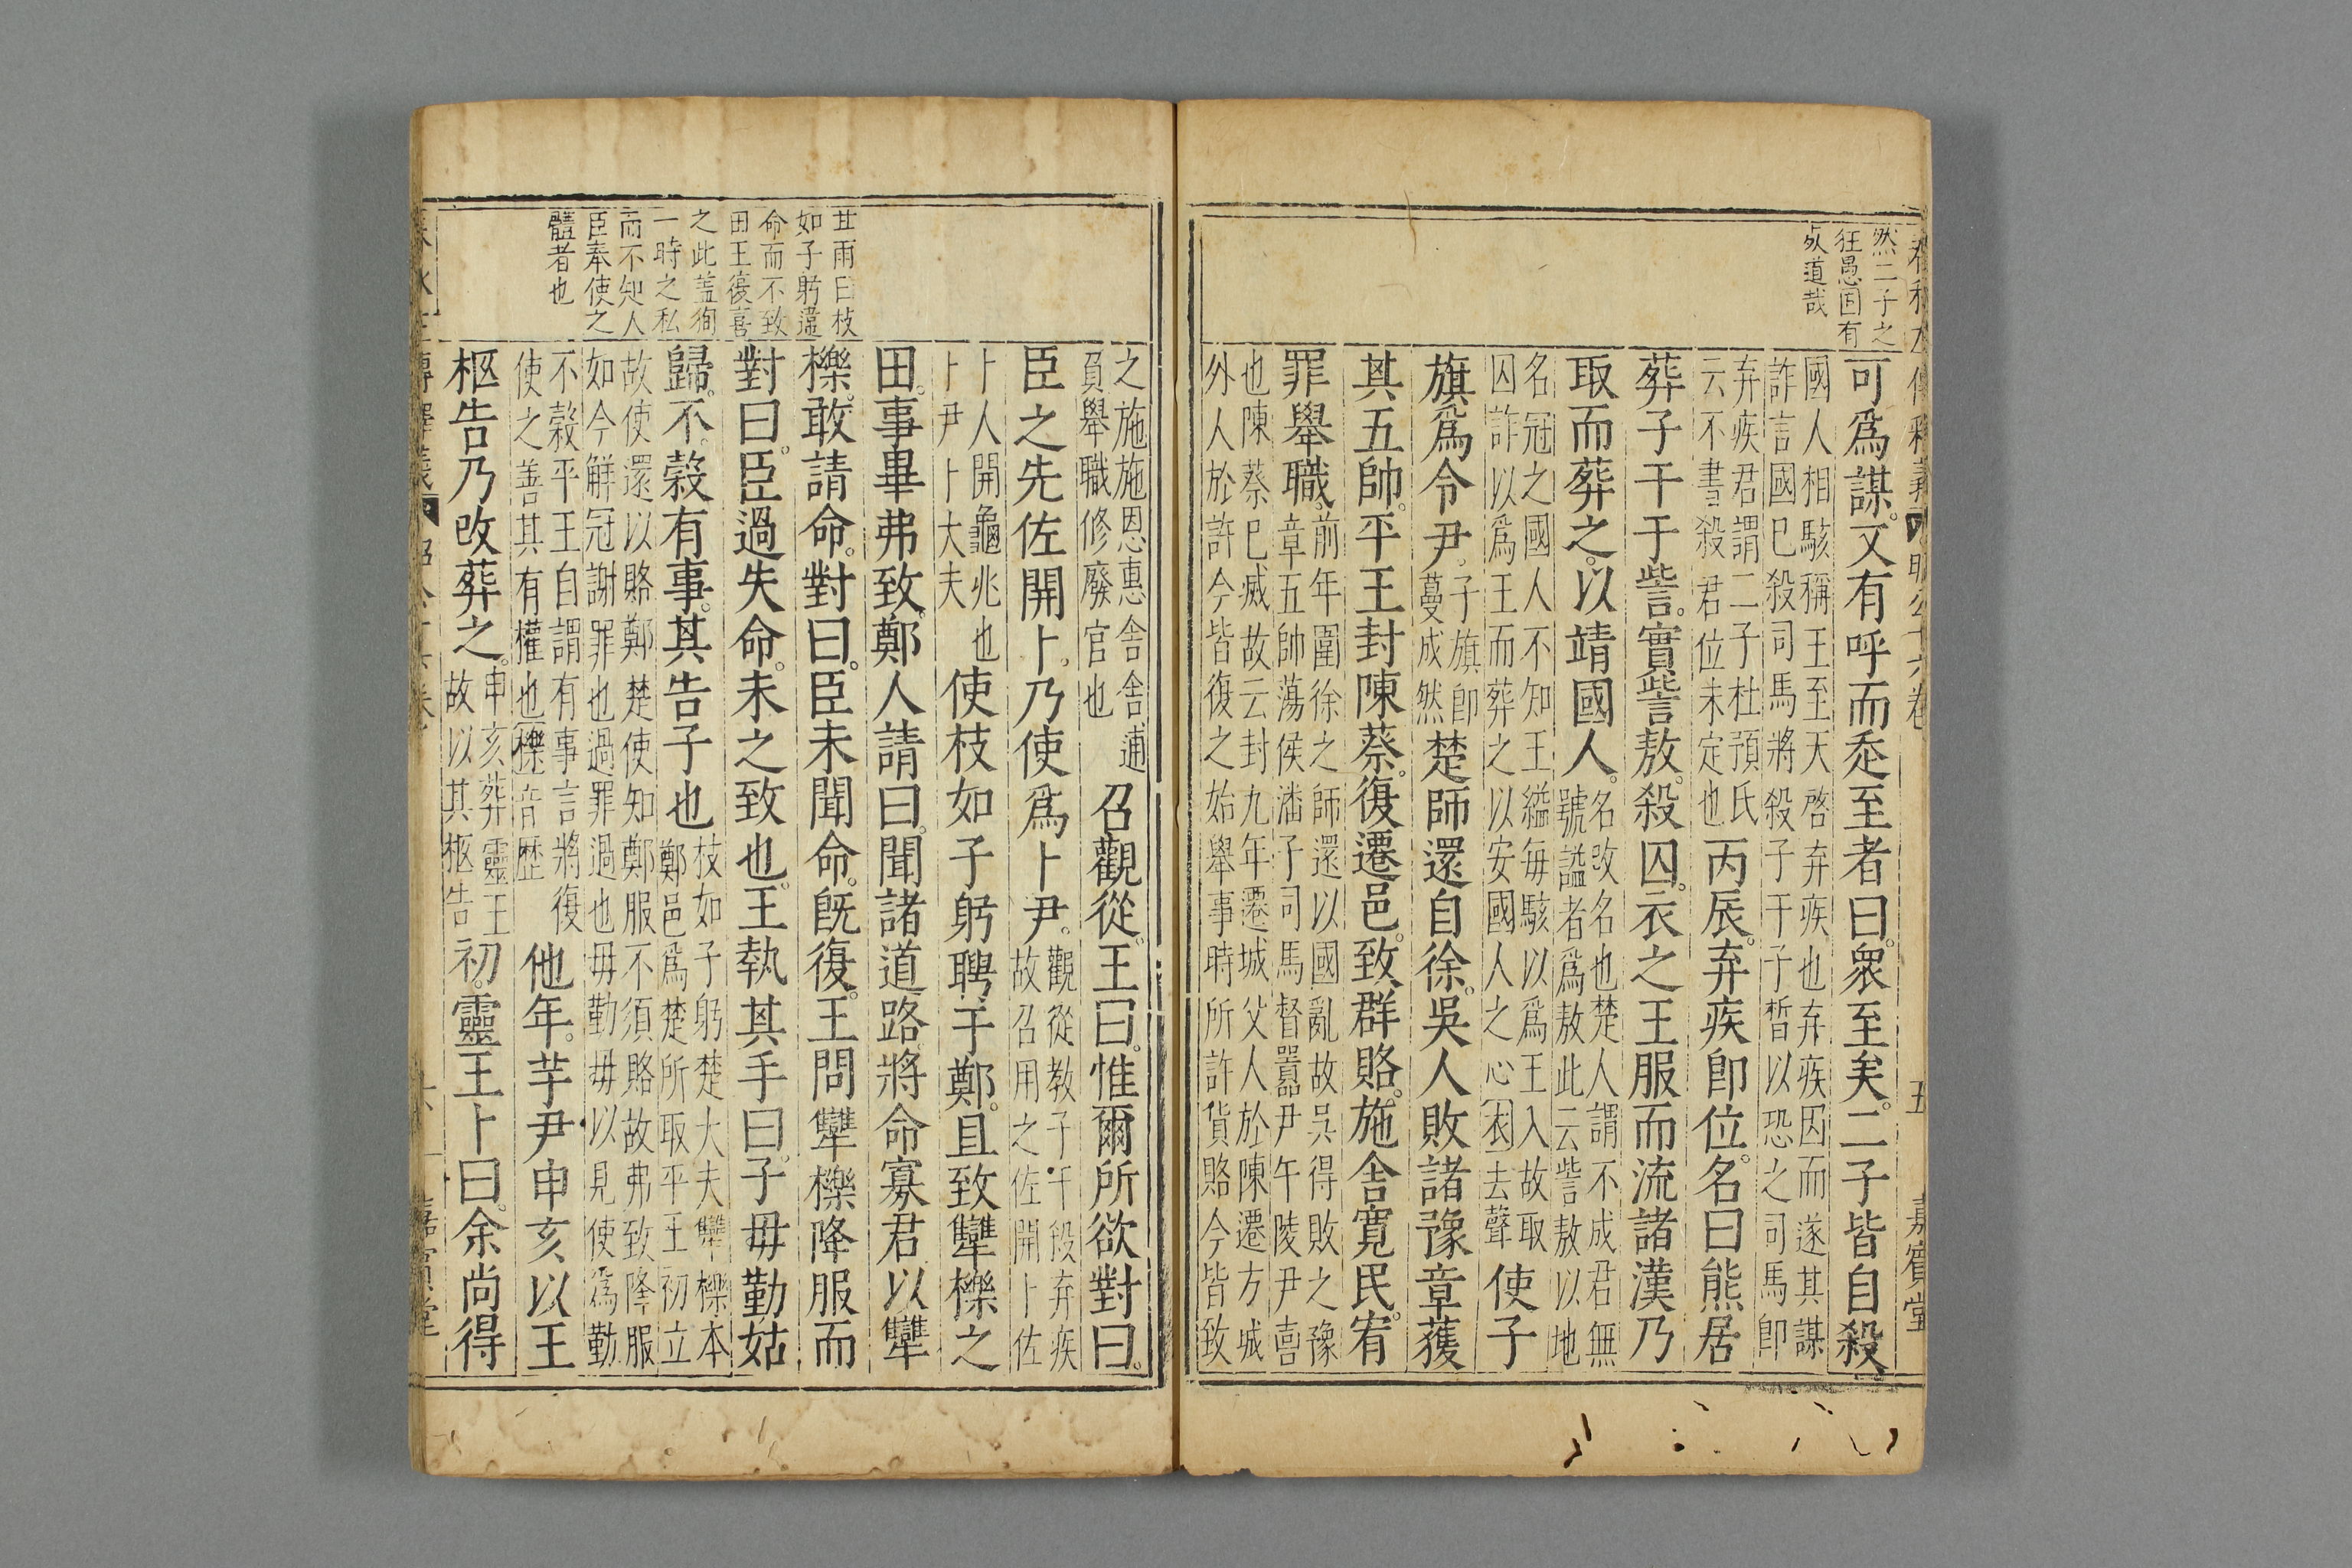 然二子之
狂愚固有
以道哉
可為謀又有呼而走至者曰衆至矣二子皆自殺
國人相駭稱王至天啓弃疾也弃疾因而遂其謀
詐言國已殺司馬將殺子干子晳以恐之司馬即
弃疾君謂二子杜預氏
云不書弒君位未定也
丙辰弃疾即位名曰熊居
葬子干于訾實訾敖殺囚衣之王服而流諸漢乃
取而葬之以靖國人
名改名也楚人謂不成君無
號謚者為敖此云訾敖以地
名冠之國人不知王縊每駭以為王入故取
囚詐以為王而葬之以安國人之心衣去聲
使子
旗為令尹
子旗即
蔓成然
楚師還自徐吳人敗諸豫章獲
其五帥平王封陳蔡復遷邑致群賂施舍寬民宥
罪舉職
前年圍徐之師還以國亂故吳得敗之豫
章五帥蕩侯潘子司馬督囂尹午陵尹喜
也陳蔡已滅故云封九年遷城父人於陳遷方城
外人於許今皆復之始舉事時所許貨賂今皆致
之施施恩惠舍舍逋
負舉職修廢官也
召觀從王曰惟爾所欲對曰
臣之先佐開卜乃使為卜尹
觀從教子干殺弃疾
故召用之佐開卜佐
卜人開龜兆也
卜尹卜大夫
使枝如子躬聘于鄭且致犨櫟之
田事畢弗致鄭人請曰聞諸道路將命寡君以犨
櫟敢請命對曰臣未聞命既復王問犨櫟降服而
對曰臣過失命未之致也王執其手曰子毋勤姑
歸不穀有事其告子也
枝如子躬楚大夫犨櫟本
鄭邑為楚所取平王初立
故使還以賂鄭楚使知鄭服不須賂故弗致降服
如今解冠謝罪也過罪過也毋勤毋以見使為勤
不穀平王自謂有事言將復
使之善其有權也櫟音歷
他年芋尹申亥以王
柩告乃改葬之
申亥葬靈王
故以其柩告
初靈王卜曰余尚得
苴雨曰枝
如子躬違
命而不致
田王復喜
之此蓋徇
一時之私
而不知人
臣奉使之
體者也
嘉賓堂